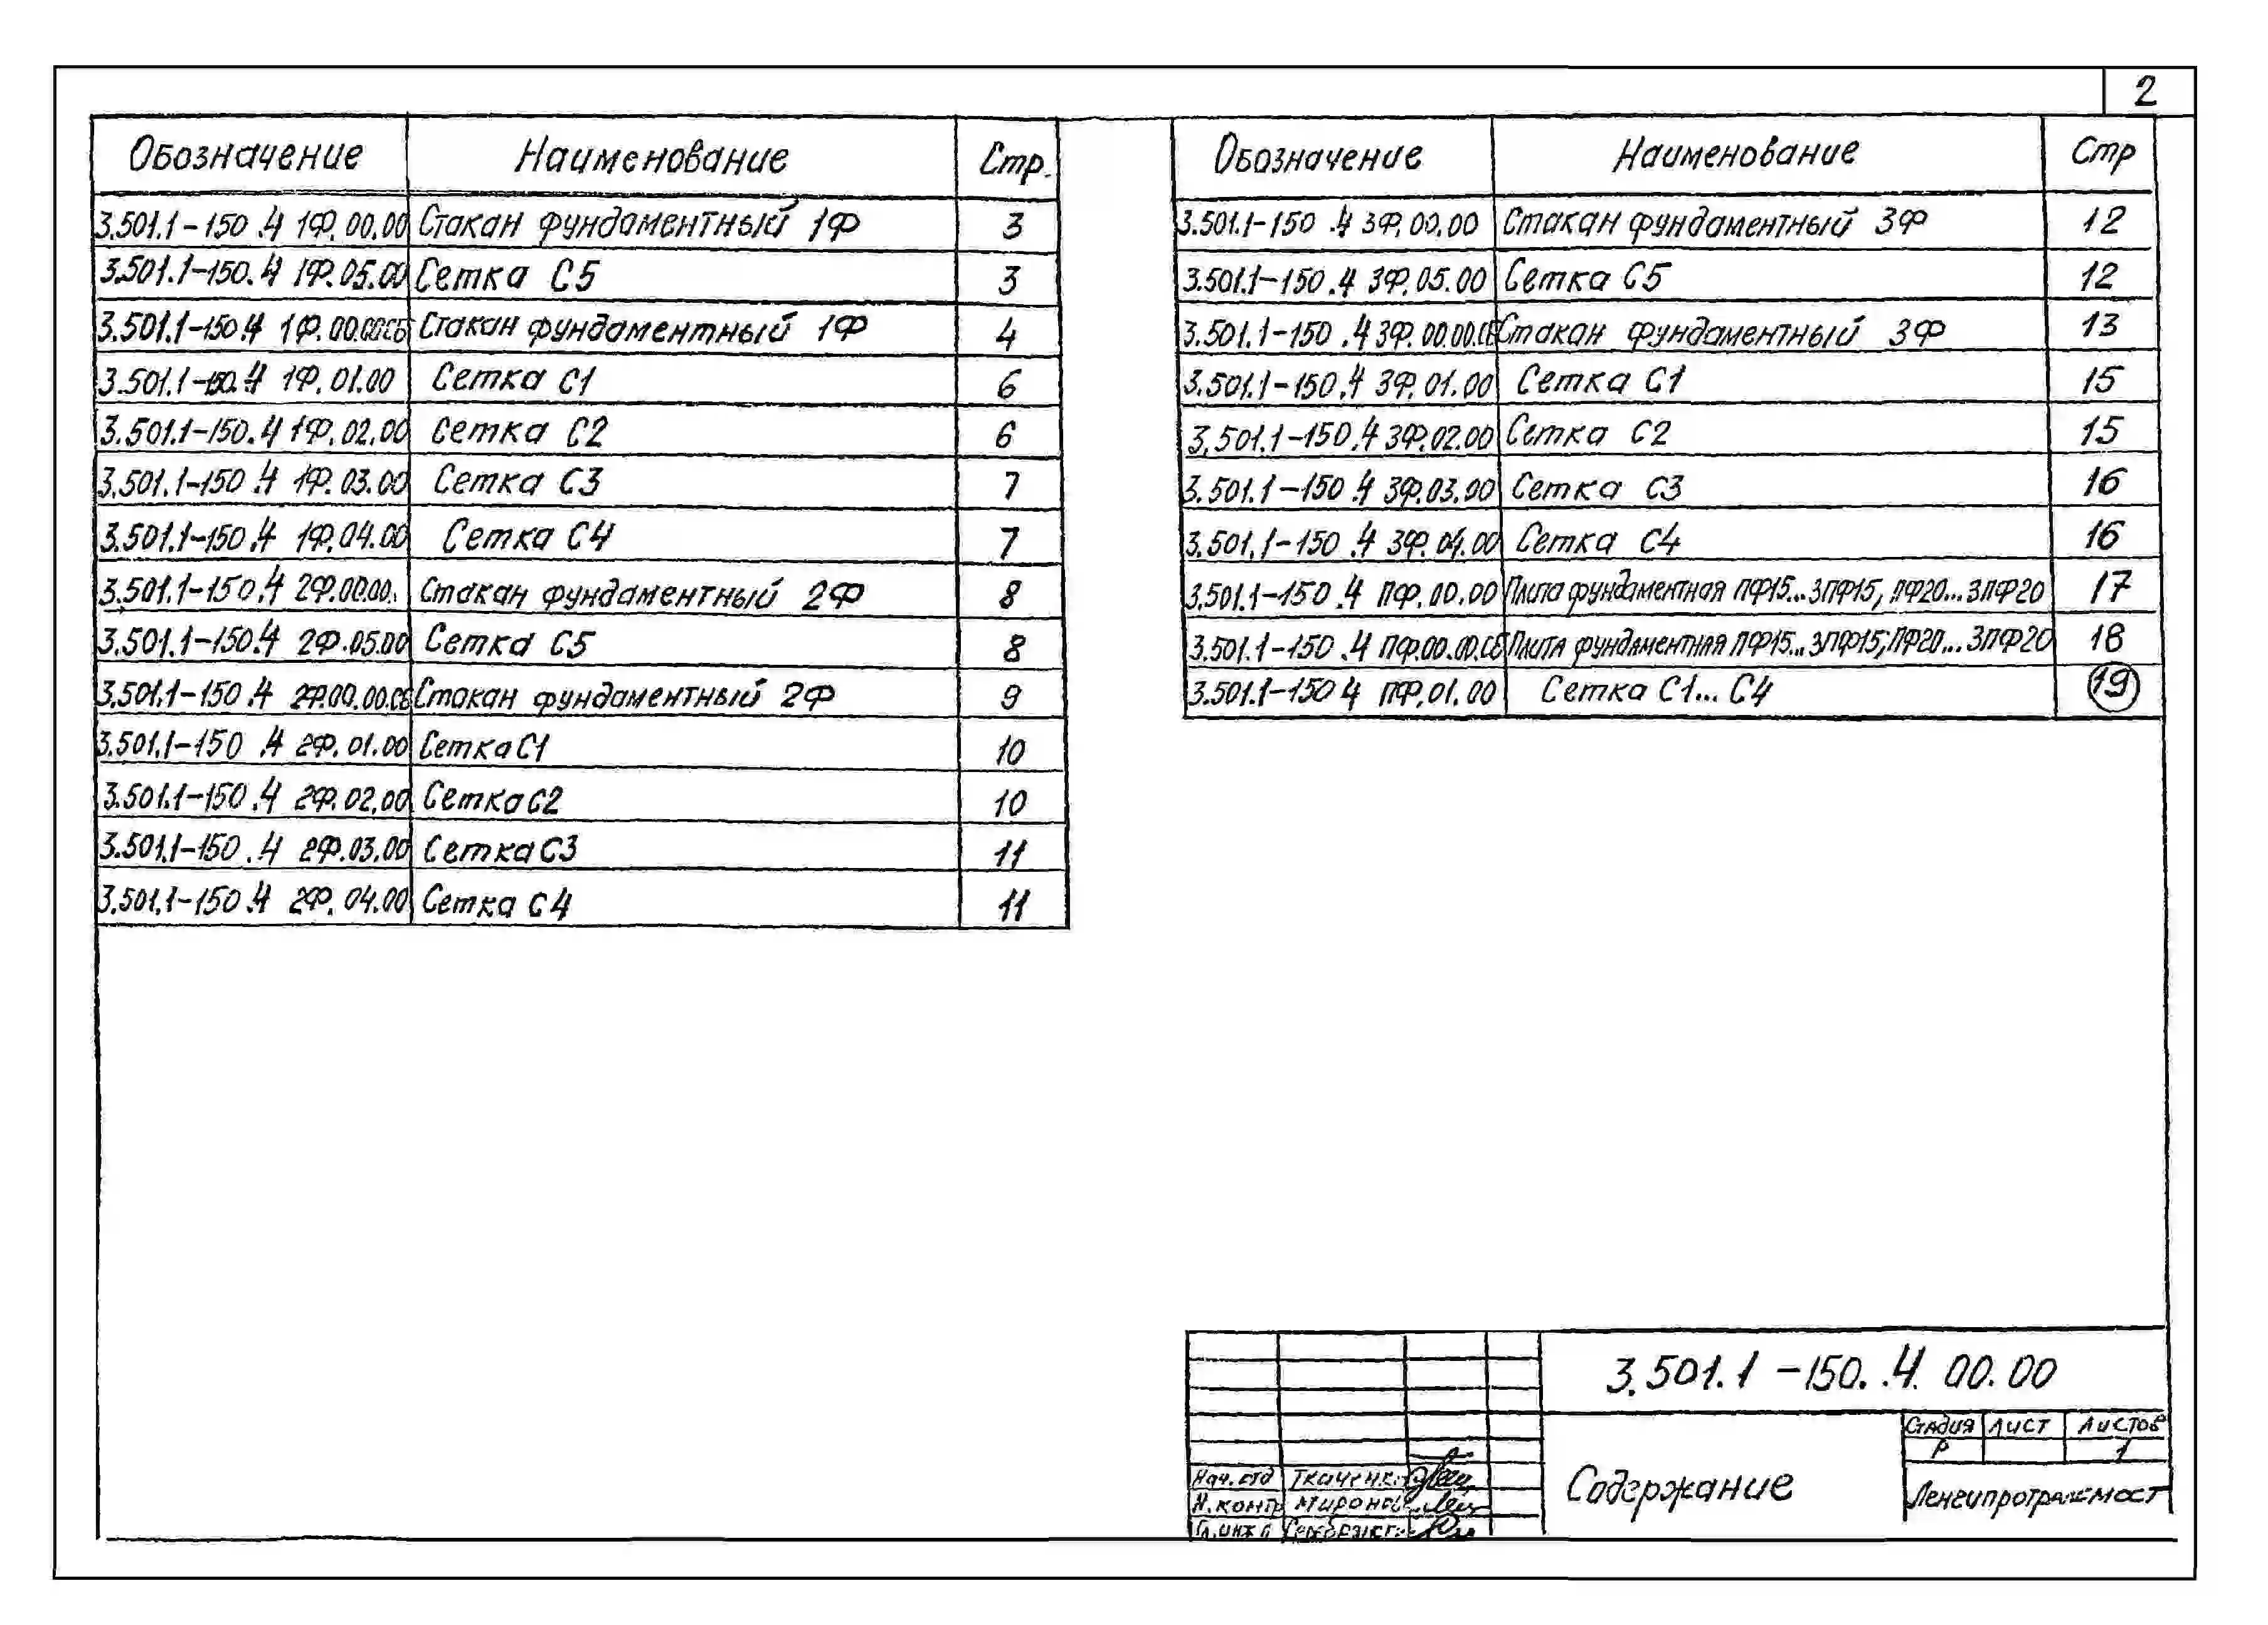 2
Обозначение Наименование Стр.
3.501.1-150.4 1Ф.00.00 Стакан фундаментный 1Ф 3
3.501.1-150.4 1Ф.05.00 Сетка С5 3
3.501.1-150.4 1Ф.00.00СБ Стакан фундаментный 1Ф 4
3.501.1-150.4 1Ф.01.00 Сетка С1 6
3.501.1-150.4 1Ф.02.00 Сетка С2 6
3.501.1-150.4 1Ф.03.00 Сетка С3 7
3.501.1-150.4 1Ф.04.00 Сетка С4 7
3.501.1-150.4 2Ф.00.00. Стакан фундаментный 2Ф 8
3.501.1-150.4 2Ф.05.00 Сетка С5 8
3.501.1-150.4 2Ф.00.00.СБ Стакан фундаментный 2Ф 9
3.501.1-150.4 2Ф.01.00 Сетка С1 10
3.501.1-150.4 2Ф.02.00 Сетка С2 10
3.501.1-150.4 2Ф.03.00 Сетка С3 11
3.501.1-150.4 2Ф.04.00 Сетка С4 11
Обозначение Наименование Стр
3.501.1-150.4 3Ф.00.00 Стакан фундаментный 3Ф 12
3.501.1-150.4 3Ф.05.00 Сетка С5 12
3.501.1-150.4 3Ф.00.00.СБ Стакан фундаментный 3Ф 13
3.501.1-150.4 3Ф.01.00 Сетка С1 15
3.501.1-150.4 3Ф.02.00 Сетка С2 15
3.501.1-150.4 3Ф.03.00 Сетка С3 16
3.501.1-150.4 3Ф.04.00 Сетка С4 16
3.501.1-150.4 ПФ.00.00 Плита фундаментная ПФ15...3ПФ15, ПФ20...3ПФ20 17
3.501.1-150.4 ПФ.00.00.СБ Плита фундаментная ПФ15...3ПФ15; ПФ20...3ПФ20 18
3.501.1-150 4 ПФ.01.00 Сетка С1...С4 19
3.501.1-150..4. 00.00
Стадия Лист Листов
Р 1
Содержание
Ленгипротрансмост
Нач.отд Ткаченко
Н.контр Миронова
Гл.инж.п